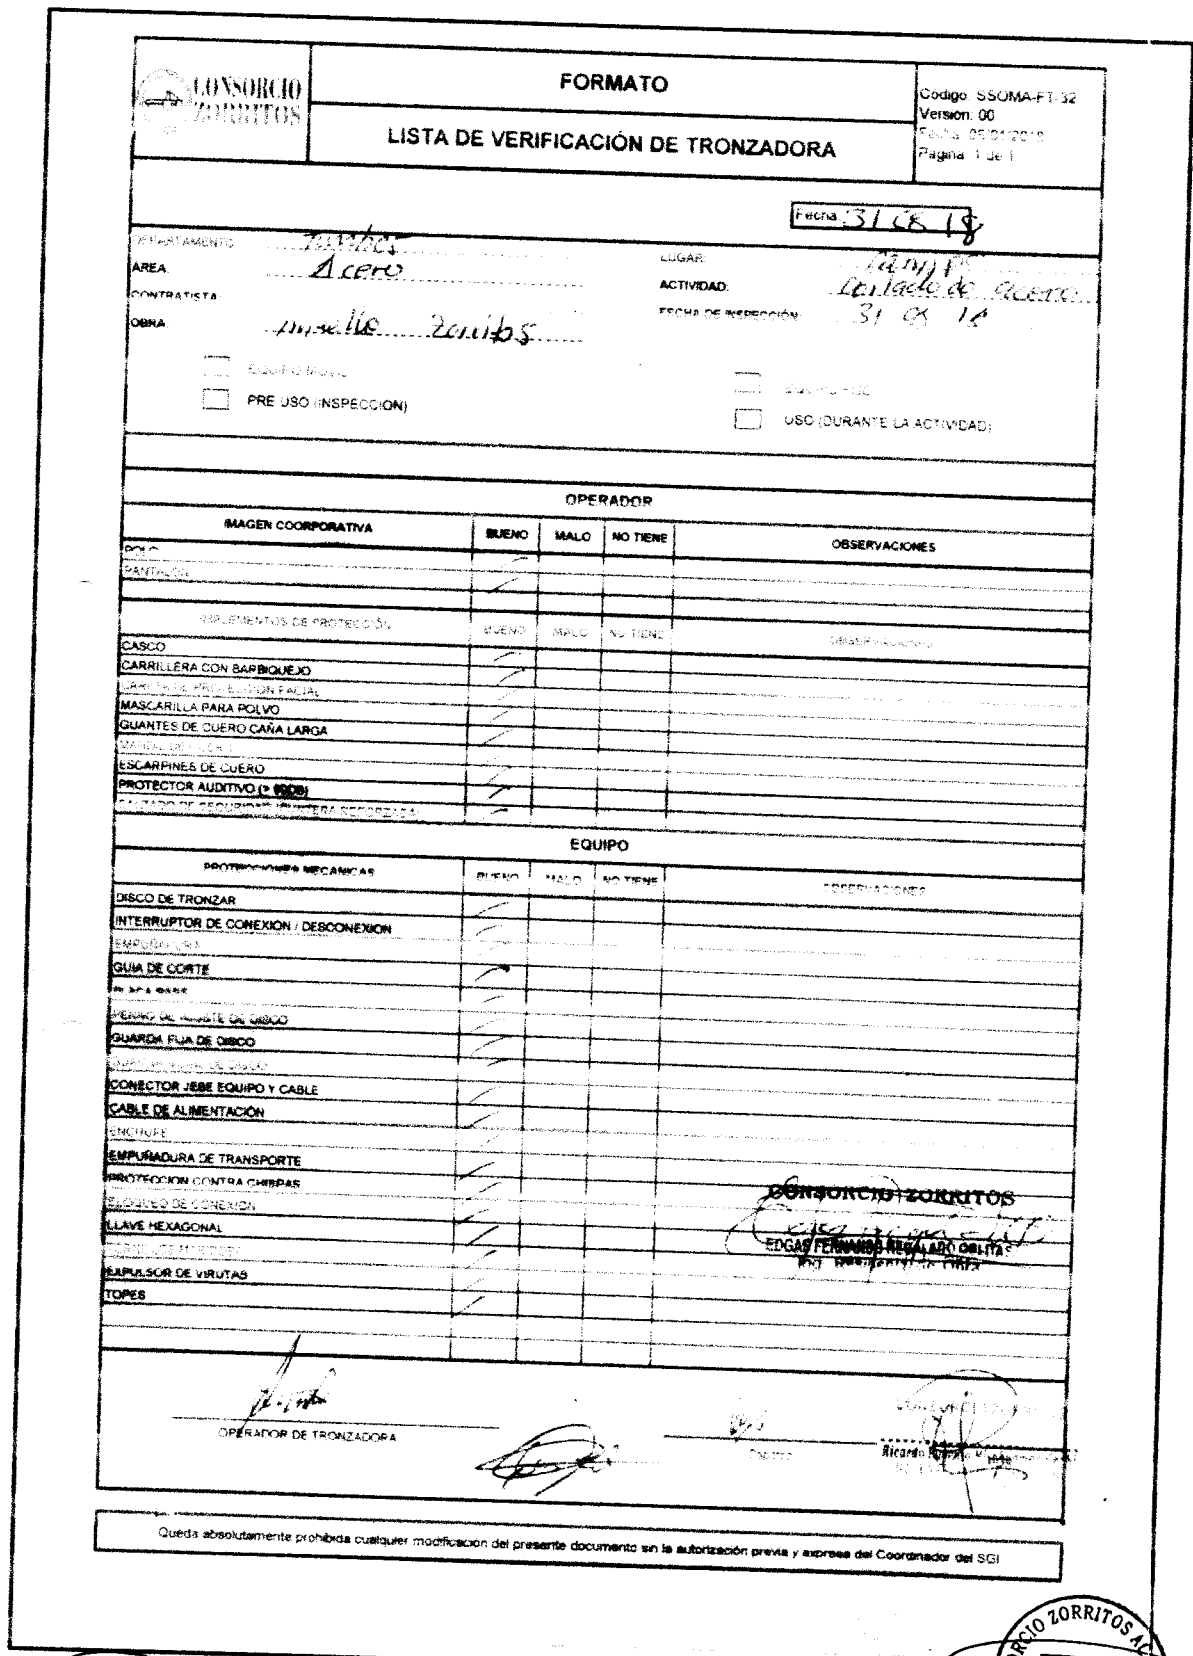 CONSORCIO
ZORRITOS
FORMATO
LISTA DE VERIFICACIÓN DE TRONZADORA
Codigo: SSOMA-FT-32
Version: 00
Pagina: 1 de 1
Fecha: 31 08 18
DEPARTAMENTO: Tumbes
LUGAR:
AREA: Acero
ACTIVIDAD: de acero
CONTRATISTA:
FECHA DE INSPECCIÓN: 31 08 18
OBRA: muelle Zorritos
EQUIPO MOVIL
PRE USO (INSPECCION)
USO (DURANTE LA ACTIVIDAD)
OPERADOR
IMAGEN COORPORATIVA BUENO MALO NO TIENE OBSERVACIONES
POLO
PANTALON
IMPLEMENTOS DE PROTECCIÓN BUENO MALO NO TIENE OBSERVACIONES
CASCO
CARRILLERA CON BARBIQUEJO
MASCARILLA PARA POLVO
GUANTES DE CUERO CAÑA LARGA
ESCARPINES DE CUERO
PROTECTOR AUDITIVO
CALZADO DE SEGURIDAD
EQUIPO
PROTECCIONES MECANICAS BUENO MALO NO TIENE OBSERVACIONES
DISCO DE TRONZAR
INTERRUPTOR DE CONEXION / DESCONEXION
EMPUÑADURA
GUIA DE CORTE
PLACA BASE
PERNO DE AJUSTE DE DISCO
GUARDA FIJA DE DISCO
CONECTOR JEBE EQUIPO Y CABLE
CABLE DE ALIMENTACIÓN
ENCHUFE
EMPUÑADURA DE TRANSPORTE
PROTECCION CONTRA CHISPAS
BLOQUEO DE CONEXION
LLAVE HEXAGONAL
EXPULSOR DE VIRUTAS
TOPES
CONSORCIO ZORRITOS
EDGAR FERNANDO REGALADO OBLITAS
OPERADOR DE TRONZADORA
Ricardo
Queda absolutamente prohibida cualquier modificacion del presente documento sin la autorización previa y expresa del Coordinador del SGI
ZORRITOS